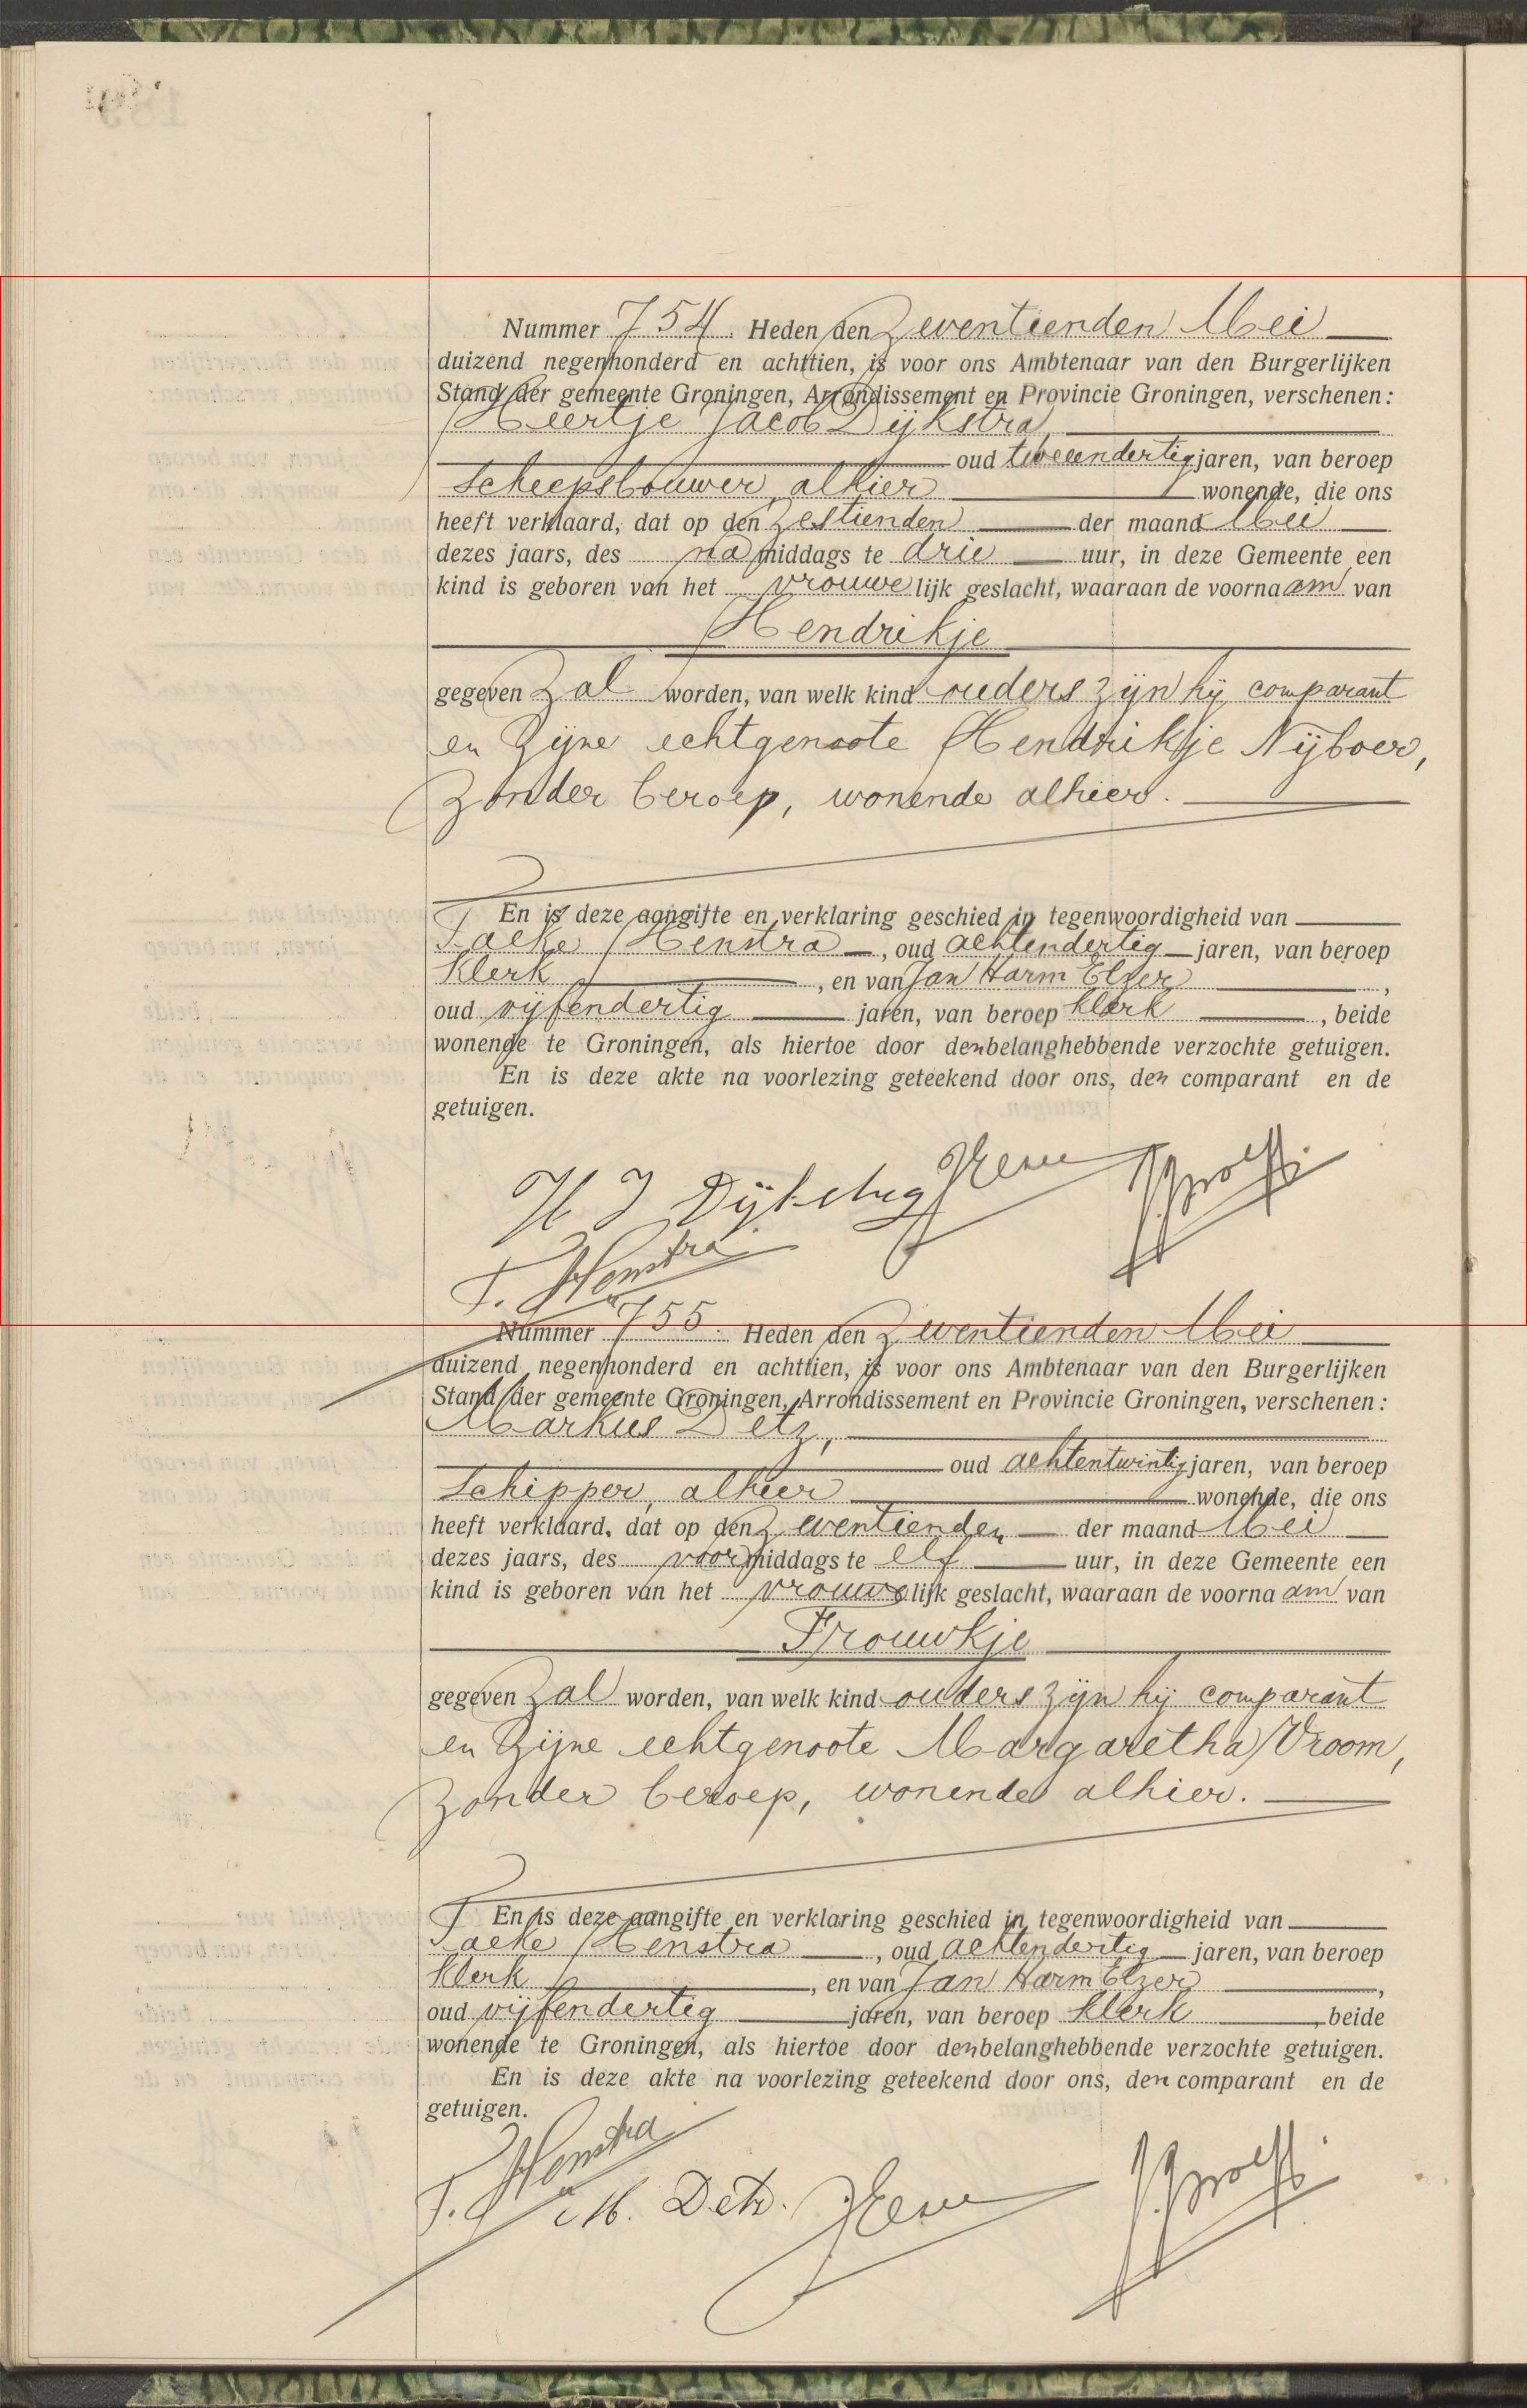 Nummer 754. Heden den Zeventienden Mei
duizend negenhonderd en achttien, is voor ons Ambtenaar van den Burgerlijken
Stand der gemeente Groningen, Arrondissement en Provincie Groningen, verschenen:
Heertje Jacob Dijkstra,
oud tweeendertig jaren, van beroep
Scheepsbouwer, alhier wonende, die ons
heeft verklaard, dat op den Zestienden der maand Mei
dezes jaars, des namiddags te drie uur, in deze Gemeente een
kind is geboren van het vrouwelijk geslacht, waaraan de voornaam van
Hendrikje
gegeven Zal worden, van welk kind ouders zijn hij comparant
en Zijne echtgenoote Hendrikje Nijboer,
Zonder beroep, wonende alhier.
En is deze aangifte en verklaring geschied in tegenwoordigheid van
Taeke Henstra, oud achtendertig jaren, van beroep
Klerk, en van Jan Harm Elzer,
oud vijfendertig jaren, van beroep Klerk, beide
wonende te Groningen, als hiertoe door den belanghebbende verzochte getuigen.
En is deze akte na voorlezing geteekend door ons, den comparant en de
getuigen.
H J Dijkstra
T. Henstra
Nummer 755. Heden den Zeventienden Mei
duizend negenhonderd en achttien, is voor ons Ambtenaar van den Burgerlijken
Stand der gemeente Groningen, Arrondissement en Provincie Groningen, verschenen:
Markus Detz,
oud achtentwintig jaren, van beroep
Schipper, alhier wonende, die ons
heeft verklaard, dat op den Zeventienden der maand Mei
dezes jaars, des voormiddags te elf uur, in deze Gemeente een
kind is geboren van het vrouwelijk geslacht, waaraan de voornaam van
Frouwkje
gegeven Zal worden, van welk kind ouders zijn hij comparant
en Zijne echtgenoote Margaretha Vroom,
Zonder beroep, wonende alhier.
En is deze aangifte en verklaring geschied in tegenwoordigheid van
Taeke Henstra, oud achtendertig jaren, van beroep
Klerk, en van Jan Harm Elzer,
oud vijfendertig jaren, van beroep Klerk, beide
wonende te Groningen, als hiertoe door den belanghebbende verzochte getuigen.
En is deze akte na voorlezing geteekend door ons, den comparant en de
getuigen.
T. Henstra
M. Detz.